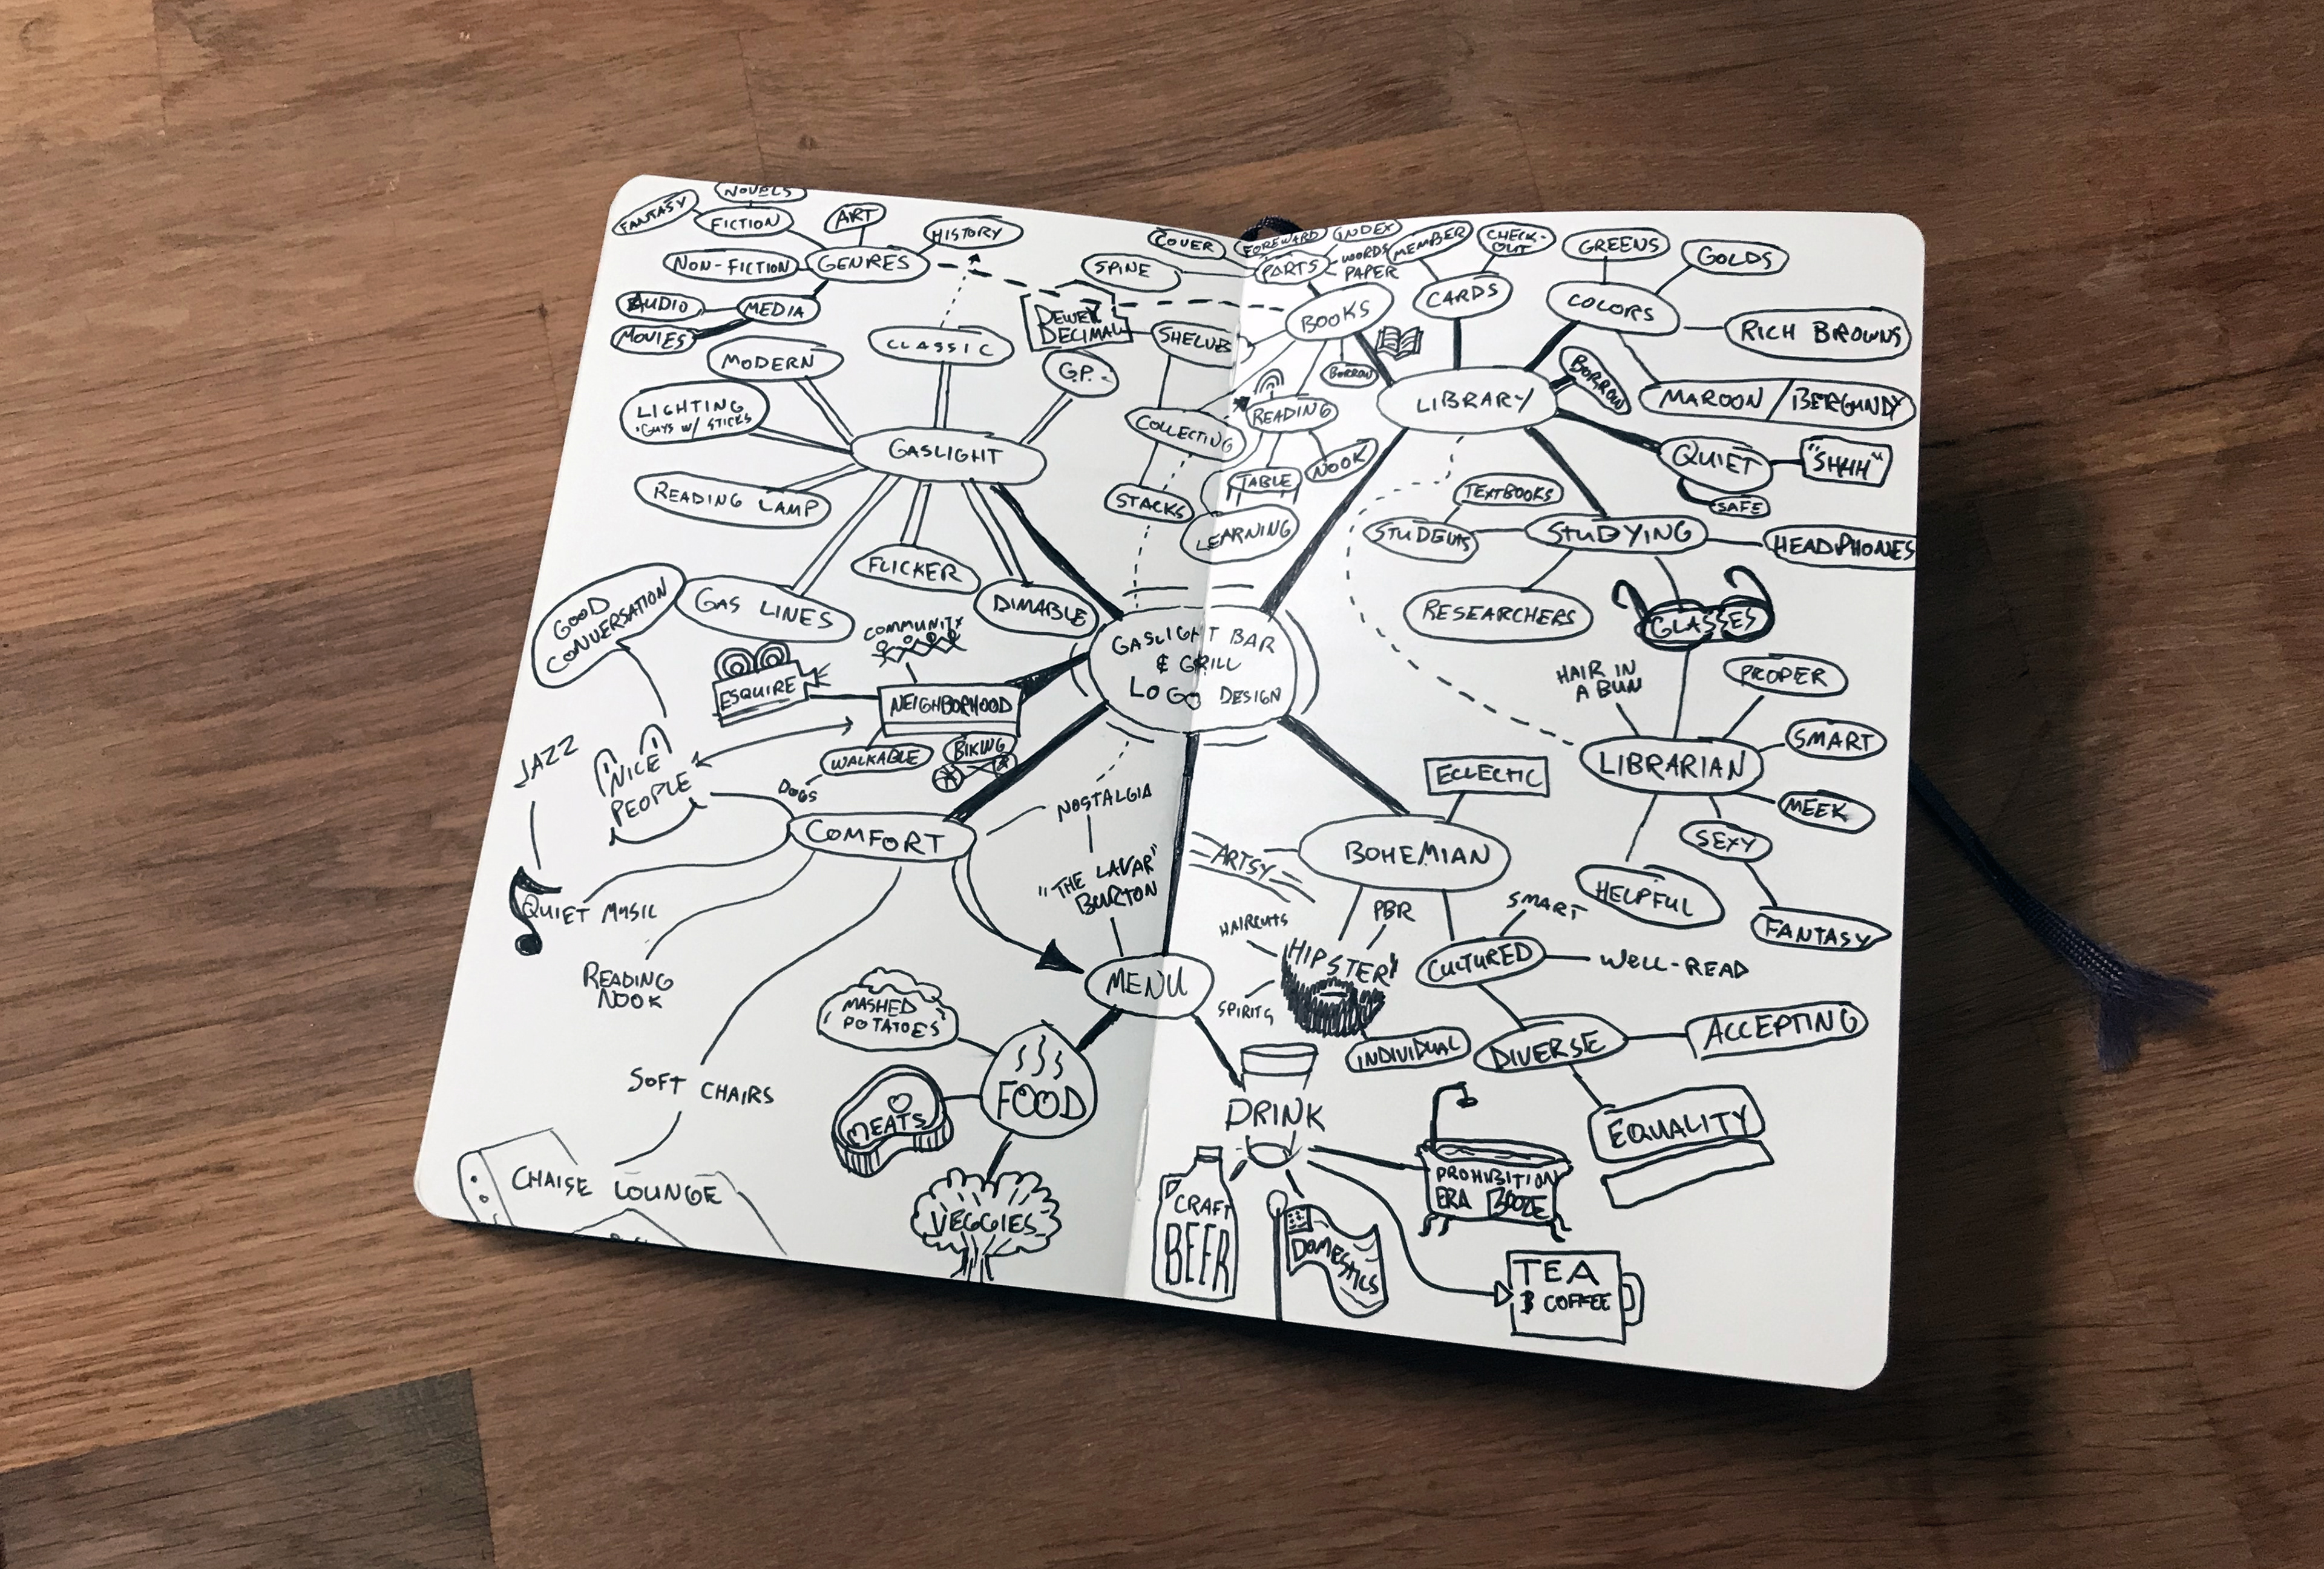 NOVELS
FANTASY
FICTION
ART
HISTORY
NON-FICTION
GENRES
AUDIO
MEDIA
MOVIES
MODERN
CLASSIC
G.P.
LIGHTING
• GUYS W/ STICKS
GASLIGHT
READING LAMP
FLICKER
GAS LINES
DIMABLE
COVER
SPINE
DEWEY
DECIMAL
SHELVES
COLLECTING
STACKS
FOREWARD
INDEX
PARTS
WORDS
PAPER
MEMBER
CHECK-
OUT
BOOKS
CARDS
BORROW
READING
NOOK
TABLE
LEARNING
GREENS
GOLDS
COLORS
RICH BROWNS
MAROON / BERGUNDY
LIBRARY
BORROW
QUIET
"SHHH"
SAFE
TEXTBOOKS
STUDENTS
STUDYING
HEADPHONES
RESEARCHERS
GLASSES
HAIR IN
A BUN
PROPER
SMART
LIBRARIAN
MEEK
SEXY
FANTASY
HELPFUL
GASLIGHT BAR
& GRILL
LOGO DESIGN
GOOD
CONVERSATION
COMMUNITY
ESQUIRE
NEIGHBORHOOD
WALKABLE
BIKING
DOGS
JAZZ
"NICE"
PEOPLE
COMFORT
QUIET MUSIC
READING
NOOK
SOFT CHAIRS
CHAISE LOUNGE
NOSTALGIA
"THE LAVAR"
BURTON
MENU
MASHED
POTATOES
FOOD
MEATS
VEGGIES
ECLECTIC
BOHEMIAN
ARTSY
HAIRCUTS
PBR
HIPSTER
SPIRITS
INDIVIDUAL
SMART
CULTURED
WELL-READ
DIVERSE
ACCEPTING
EQUALITY
DRINK
CRAFT
BEER
DOMESTICS
PROHIBITION
ERA BOOZE
TEA
& COFFEE